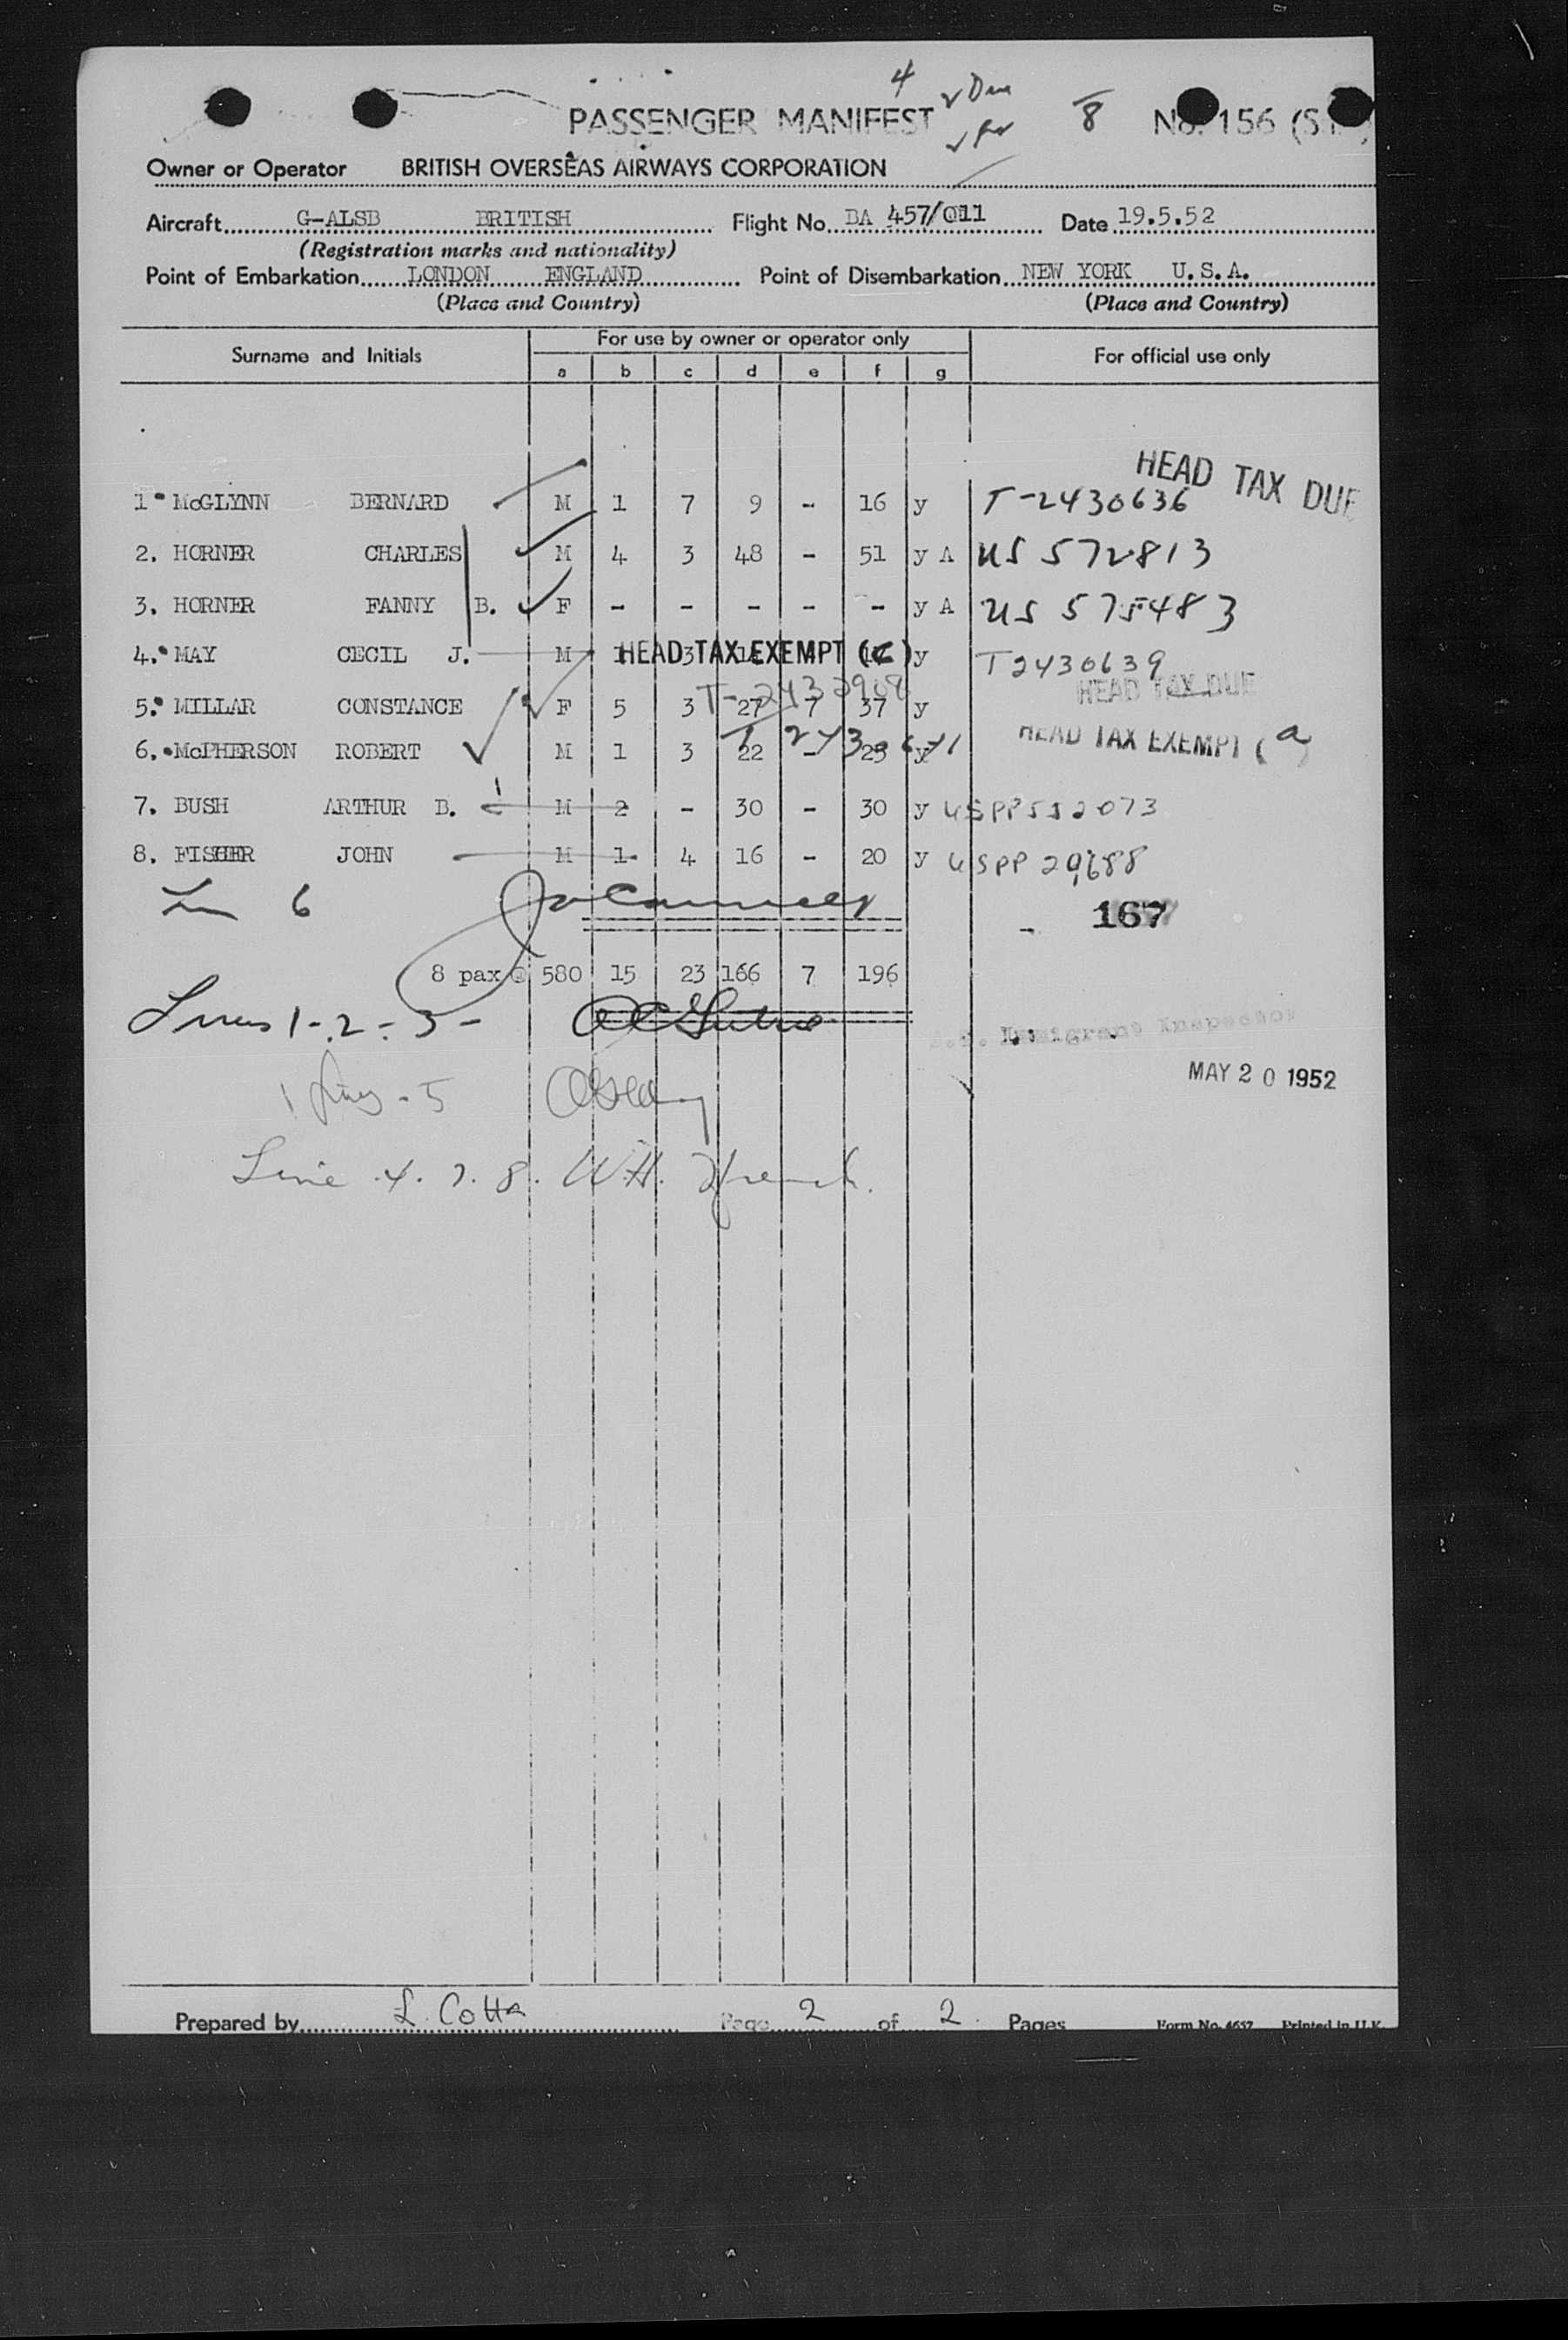 4 v Due
PASSENGER MANIFEST 8 No. 156
Owner or Operator BRITISH OVERSEAS AIRWAYS CORPORATION
Aircraft G-ALSB BRITISH Flight No. BA 457/011 Date 19.5.52
(Registration marks and nationality)
Point of Embarkation LONDON ENGLAND Point of Disembarkation NEW YORK U.S.A.
(Place and Country) (Place and Country)
Surname and Initials For use by owner or operator only For official use only
a b c d e f g
HEAD TAX DUE
1 McGLYNN BERNARD M 1 7 9 - 16 y T-2430636
2. HORNER CHARLES M 4 3 48 - 51 y A US 572813
3. HORNER FANNY B. F - - - - - y A US 575483
4. MAY CECIL J. M HEAD TAX EXEMPT ( ) y T2430639
HEAD TAX DUE
5. MILLAR CONSTANCE F 5 3 27 7 37 y
6. McPHERSON ROBERT M 1 3 22 - y HEAD TAX EXEMPT (a)
7. BUSH ARTHUR B. M 2 - 30 - 30 y USPP552073
8. FISHER JOHN M 1 4 16 - 20 y USPP 29688
6
167
8 pax @ 580 15 23 166 7 196
Lines 1-2-3-
Immigrant Inspector
MAY 20 1952
5
Line 4. 7. 8. W.H. French.
Prepared by L. Cotta Page 2 of 2 Pages Form No. 4657 Printed in U.K.